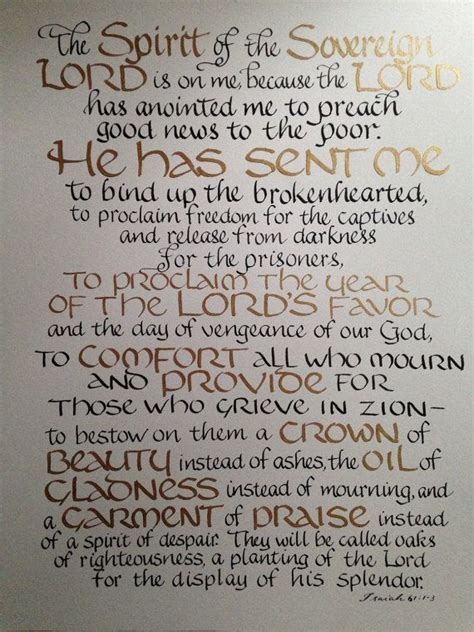 The Spirit of the Sovereign
LORD is on me, because the LORD
has anointed me to preach
good news to the poor.
He has sent me
to bind up the brokenhearted,
to proclaim freedom for the captives
and release from darkness
for the prisoners,
to proclaim the year
of the LORD'S favor
and the day of vengeance of our God,
to comfort all who mourn
and provide for
those who grieve in Zion—
to bestow on them a crown of
beauty instead of ashes, the oil of
gladness instead of mourning, and
a garment of praise instead
of a spirit of despair. They will be called oaks
of righteousness, a planting of the Lord
for the display of his splendor.
Isaiah 61:1-3